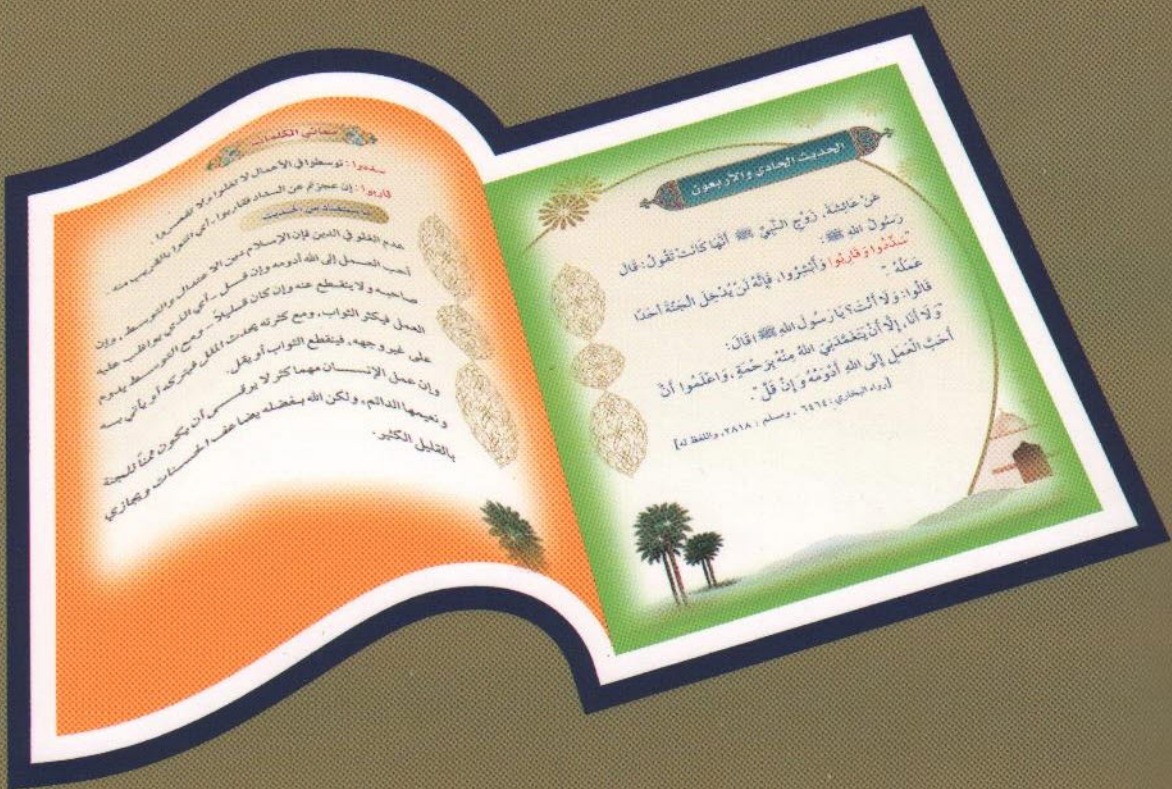 الحديث الحادي والأربعون
عَنْ عَائِشَةَ، زَوْجِ النَّبِيِّ ﷺ أَنَّهَا كَانَتْ تَقُولُ: قَالَ
رَسُولُ اللهِ ﷺ:
"سَدِّدُوا وَقَارِبُوا وَأَبْشِرُوا، فَإِنَّهُ لَنْ يُدْخِلَ الْجَنَّةَ أَحَدًا
عَمَلُهُ".
قَالُوا: وَلَا أَنْتَ؟ يَا رَسُولَ اللهِ ﷺ! قَالَ:
"وَلَا أَنَا، إِلَّا أَنْ يَتَغَمَّدَنِيَ اللهُ مِنْهُ بِرَحْمَةٍ، وَاعْلَمُوا أَنَّ
أَحَبَّ الْعَمَلِ إِلَى اللهِ أَدْوَمُهُ وَإِنْ قَلَّ".
[رواه البخاري: ٦٤٦٤، ومسلم: ٢٨١٨، واللفظ له]
معاني الكلمات
سددوا: توسطوا في الأعمال لا تغلوا ولا تقصروا.
قاربوا: إن عجزتم عن السداد فقاربوا، أي اتقوا بالقريب منه.
ما يستفاد من الحديث
عدم الغلو في الدين فإن الإسلام دين الاعتدال والتوسط، وإن
أحب العمل إلى الله أدومه وإن قل - أي الذي يواظب عليه
صاحبه ولا ينقطع عنه وإن كان قليلاً - ومع التوسط يدوم
العمل فيكثر الثواب، ومع كثرته يحدث الملل فيتركه أو يأتي به
على غير وجهه، فينقطع الثواب أو يقل.
وإن عمل الإنسان مهما كثر لا يرقى أن يكون ثمناً للجنة
ونعيمها الدائم، ولكن الله بفضله يضاعف الحسنات ويجازي
بالقليل الكثير.